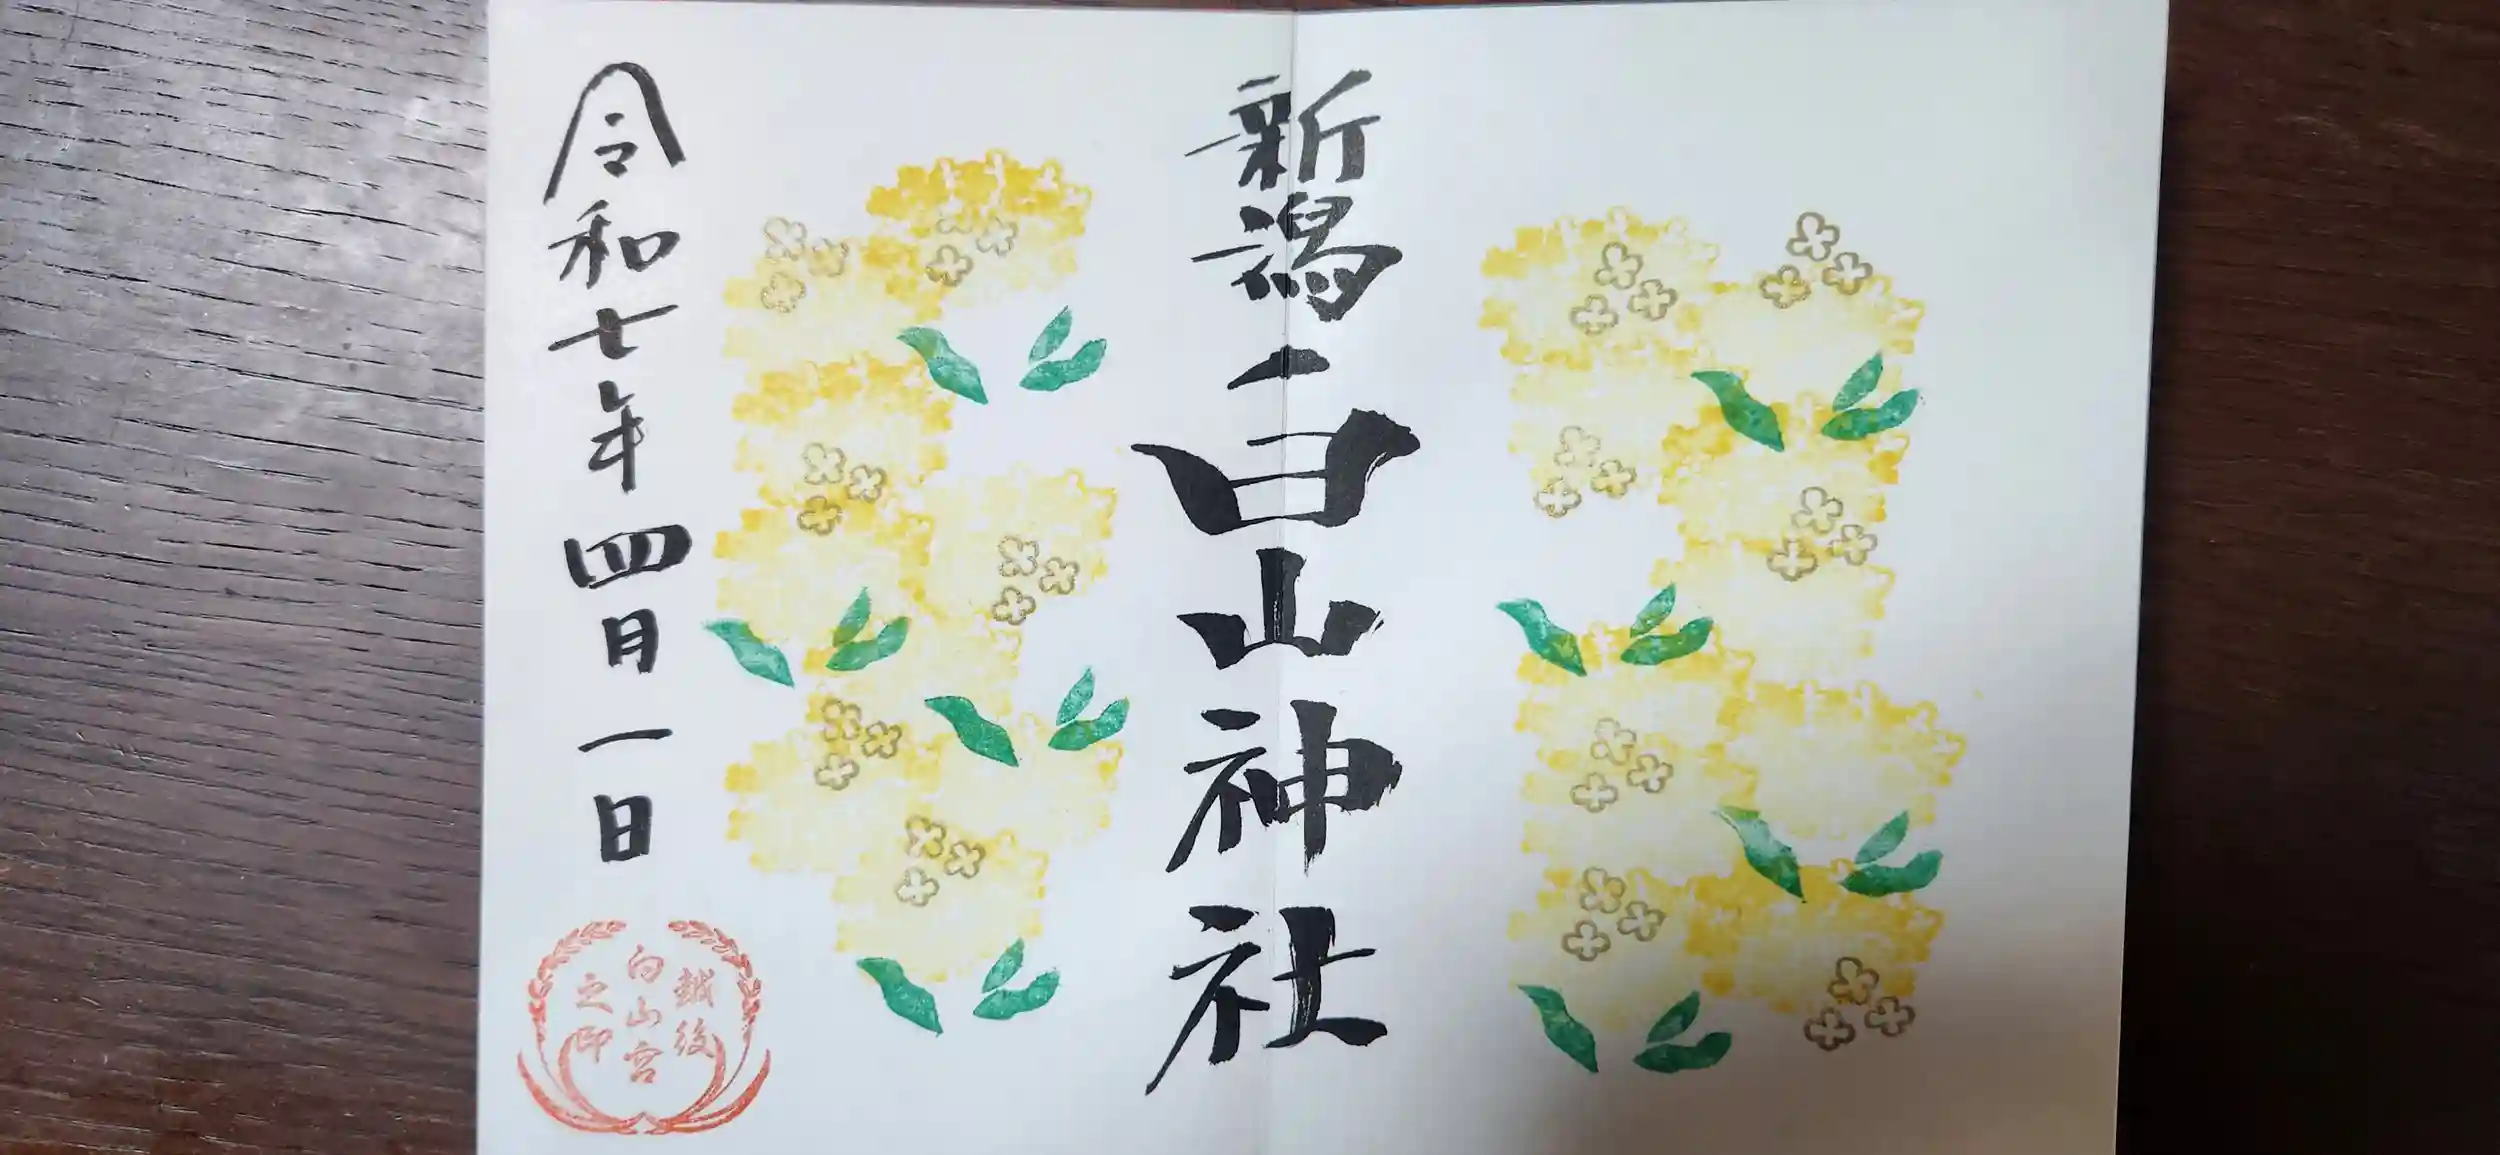 新潟白山神社
令和七年四月一日
越後
白山宮
之印